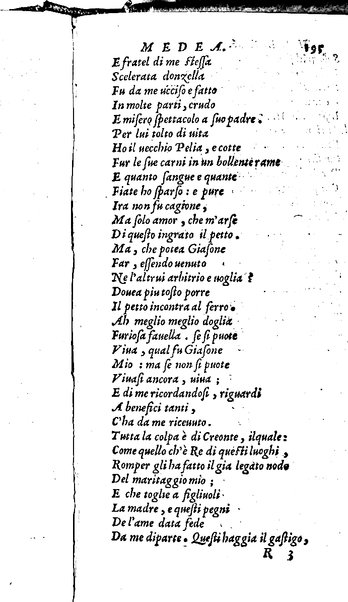 MEDEA. 195
E fratel di me ſteſſa
Scelerata donzella
Fu da me ucciſo e fatto
In molte parti, crudo
E miſero ſpettacolo a ſuo padre.
Per lui tolto di uita
Ho il uecchio Pelia, e cotte
Fur le ſue carni in un bollente rame
E quanto ſangue e quante
Fiate ho ſparſo: e pure
Ira non fu cagione,
Ma ſolo amor, che m'arſe
Di queſto ingrato il petto.
Ma, che potea Giaſone
Far, eſſendo uenuto
Ne l'altrui arbitrio e uoglia?
Douea piu toſto porre
Il petto incontra al ferro.
Ah meglio meglio doglia
Furioſa fauella. ſe ſi puote
Viua, qual fu Giaſone
Mio: ma ſe non ſi puote
Viuaſi ancora, uiua;
E di me ricordandoſi, riguardi
A benefici tanti,
C'ha da me riceuuto.
Tutta la colpa è di Creonte, ilquale:
Come quello ch'è Re di queſti luoghi,
Romper gli ha fatto il gia legato nodo
Del maritaggio mio;
E che toglie a figliuoli
La madre, e queſti pegni
De l'ame data fede
Da me diparte. Queſti haggia il gaſtigo,
R 3